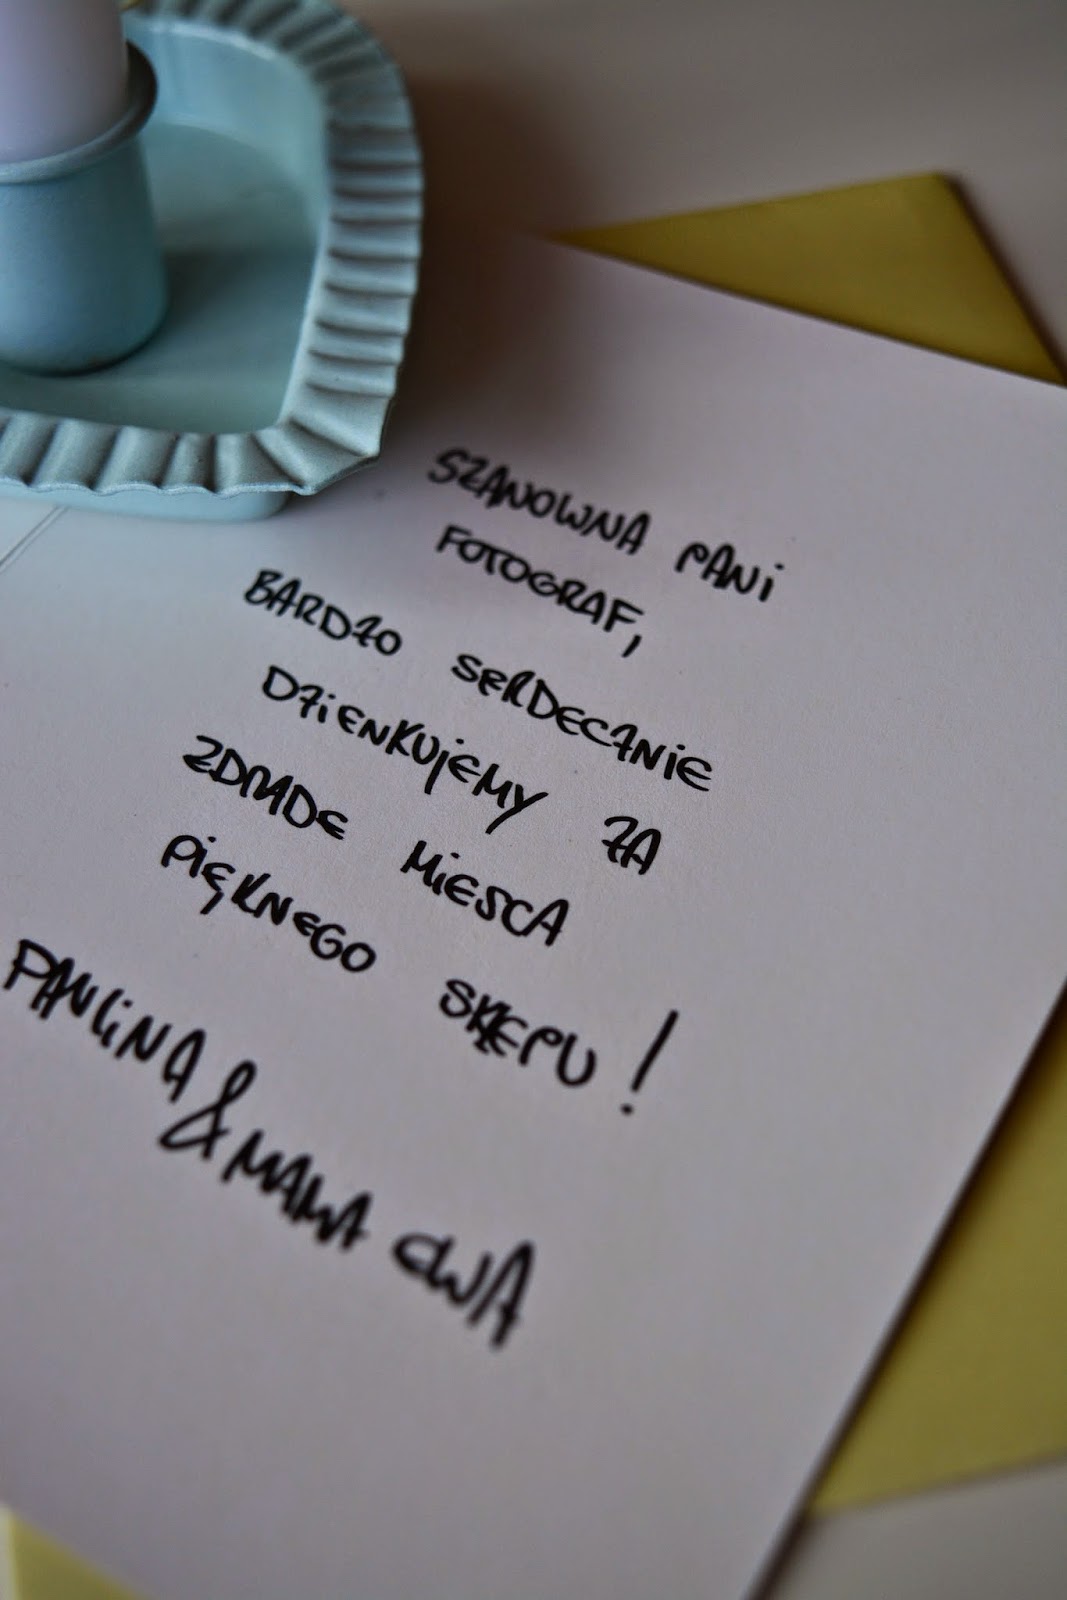 SZANOWNA PANI
FOTOGRAF,
BARDZO SERDECZNIE
DZIENKUJEMY ZA
ZDRADE MIESCA
PIĘKNEGO SKŁEPU!
PAULINA & MAMA EWA